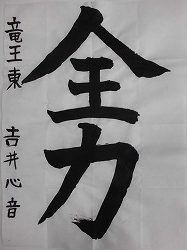 全力
竜王東
吉井心音